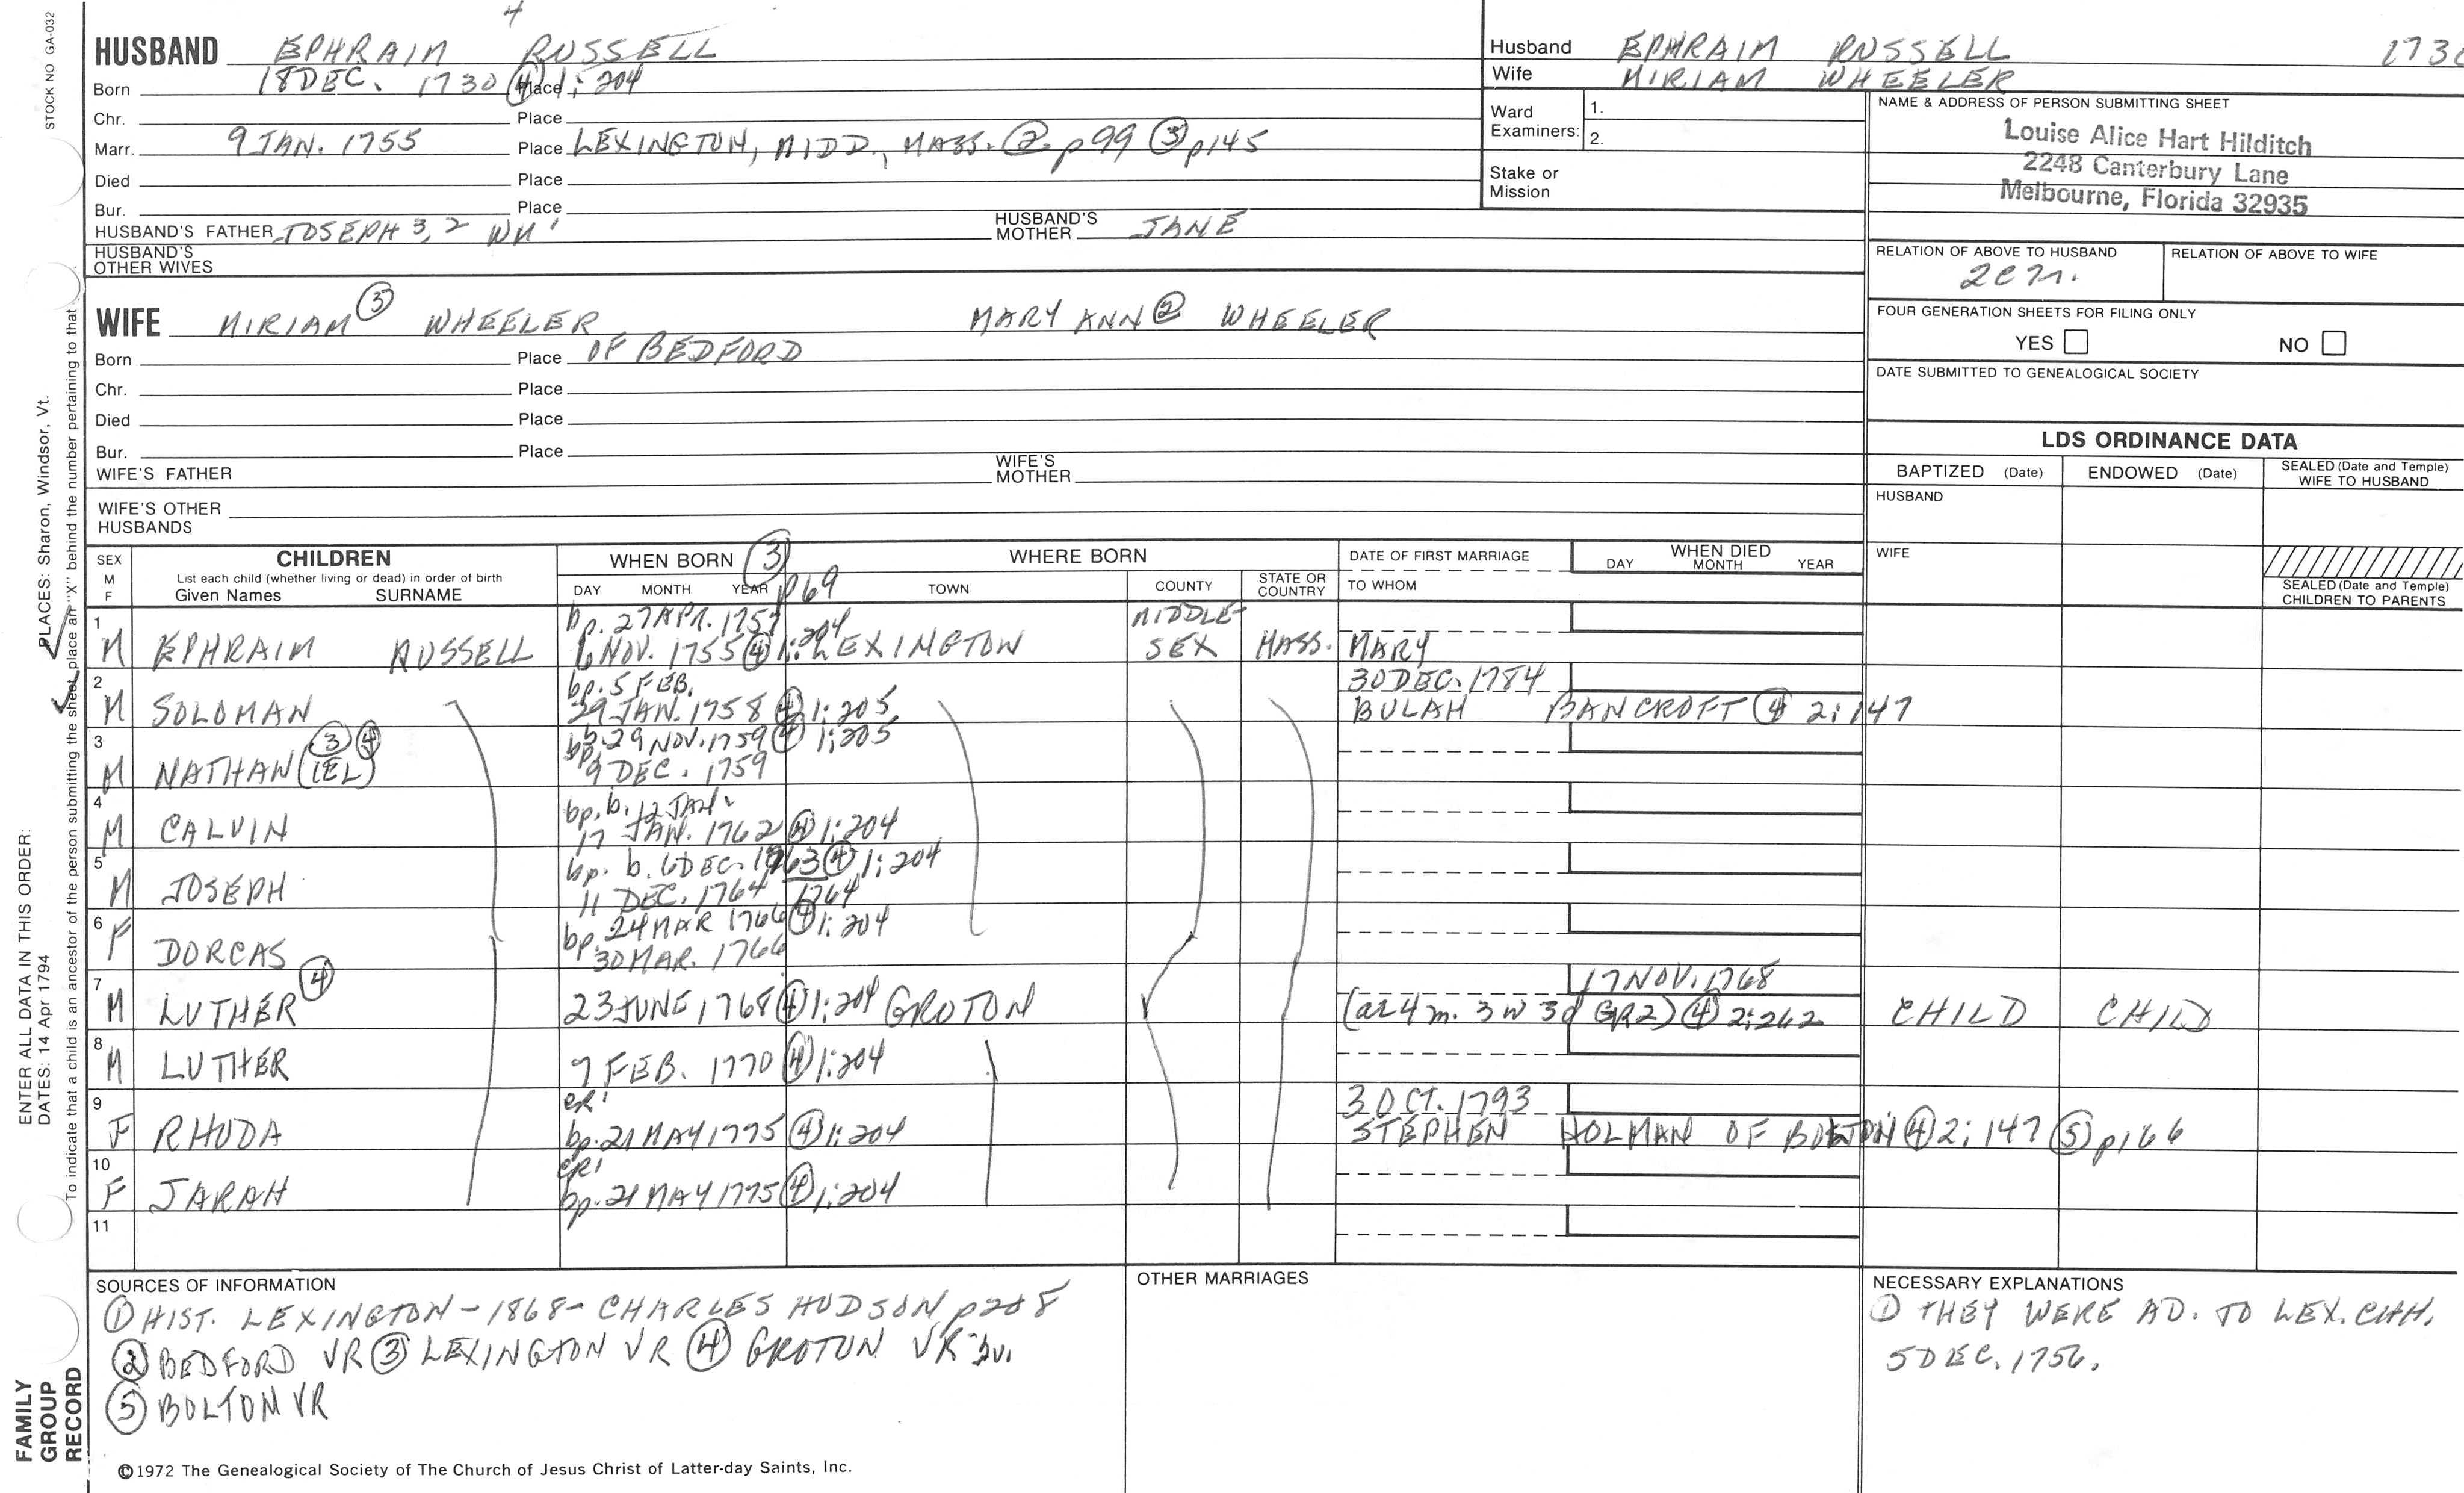 4
STOCK NO GA-032
HUSBAND EPHRAIM RUSSELL
Born 18 DEC. 1730 ④ Place 1:204
Chr. Place
Marr. 9 JAN. 1755 Place LEXINGTON, MIDD., MASS. ② p99 ③ p145
Died Place
Bur. Place
HUSBAND'S FATHER JOSEPH 3, 2 WM 1 HUSBAND'S MOTHER JANE
HUSBAND'S OTHER WIVES
WIFE MIRIAM ③ WHEELER MARY ANN ② WHEELER
Born Place OF BEDFORD
Chr. Place
Died Place
Bur. Place
WIFE'S FATHER WIFE'S MOTHER
WIFE'S OTHER HUSBANDS
Husband EPHRAIM RUSSELL 173
Wife MIRIAM WHEELER
Ward Examiners: 1.
2.
Stake or Mission
NAME & ADDRESS OF PERSON SUBMITTING SHEET
Louise Alice Hart Hilditch
2248 Canterbury Lane
Melbourne, Florida 32935
RELATION OF ABOVE TO HUSBAND RELATION OF ABOVE TO WIFE
FOUR GENERATION SHEETS FOR FILING ONLY
YES NO
DATE SUBMITTED TO GENEALOGICAL SOCIETY
LDS ORDINANCE DATA
BAPTIZED (Date) ENDOWED (Date) SEALED (Date and Temple) WIFE TO HUSBAND
HUSBAND
WIFE
SEALED (Date and Temple) CHILDREN TO PARENTS
SEX M F CHILDREN WHEN BORN ③ WHERE BORN DATE OF FIRST MARRIAGE WHEN DIED
List each child (whether living or dead) in order of birth
Given Names SURNAME DAY MONTH YEAR p69 TOWN COUNTY STATE OR COUNTRY TO WHOM DAY MONTH YEAR
1 bp. 27 APR. 1757 MIDDLE-
M EPHRAIM RUSSELL 6 NOV. 1755 ④ 1:204 LEXINGTON SEX MASS. MARY
2 bp. 5 FEB. 30 DEC. 1784
M SOLOMAN 29 JAN. 1758 ④ 1:205 BULAH BANCROFT ④ 2:147
3 ③ ④ b. 29 NOV. 1759 ④ 1:205
M NATHAN (IEL) bp. 9 DEC. 1759
4 bp. b. 12 JAN.
M CALVIN 17 JAN. 1762 ④ 1:204
5 bp. b. 6 DEC. 1763 ④ 1:204
M JOSEPH 11 DEC. 1764 1764
6 24 MAR 1766 ④ 1:204
F DORCAS bp. 30 MAR. 1766
7 ④ 17 NOV. 1768
M LUTHER 23 JUNE 1768 ④ 1:204 GROTON (ae 4 m. 3 w 3 d GR2) ④ 2:262 CHILD CHILD
8
M LUTHER 7 FEB. 1770 ④ 1:204
9 CR1 3 OCT. 1793
F RHODA bp. 21 MAY 1775 ④ 1:204 STEPHEN HOLMAN OF BOLTON ④ 2:147 ⑤ p166
10 CR1
F JARAH bp. 21 MAY 1775 ④ 1:204
11
SOURCES OF INFORMATION
① HIST. LEXINGTON - 1868 - CHARLES HUDSON p208
② BEDFORD VR ③ LEXINGTON VR ④ GROTON VR 2v.
⑤ BOLTON VR
OTHER MARRIAGES
NECESSARY EXPLANATIONS
① THEY WERE AD. TO LEX. CHH.
5 DEC. 1756.
©1972 The Genealogical Society of The Church of Jesus Christ of Latter-day Saints, Inc.
ENTER ALL DATA IN THIS ORDER:
DATES: 14 Apr 1794
PLACES: Sharon, Windsor, Vt.
To indicate that a child is an ancestor of the person submitting the sheet, place an "X" behind the number pertaining to that
FAMILY GROUP RECORD